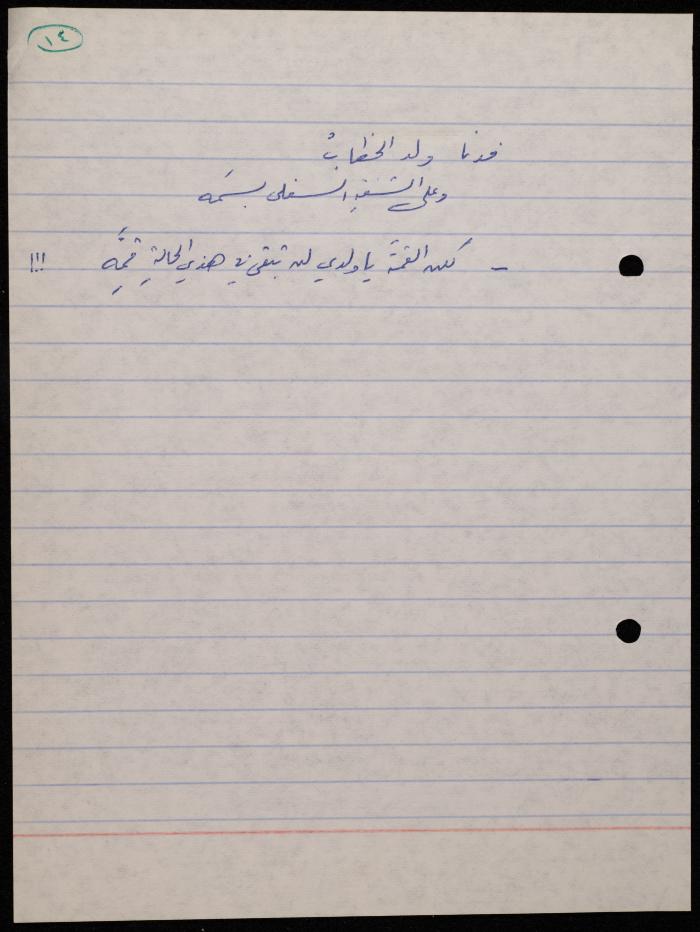 ١٤
فدنا ولد الخطابْ
وعلى الشفةِ السفلى بسمَه
- لكن القمةَ يا ولدي لن تبقى في هذي الحالةِ قمَّه !!!